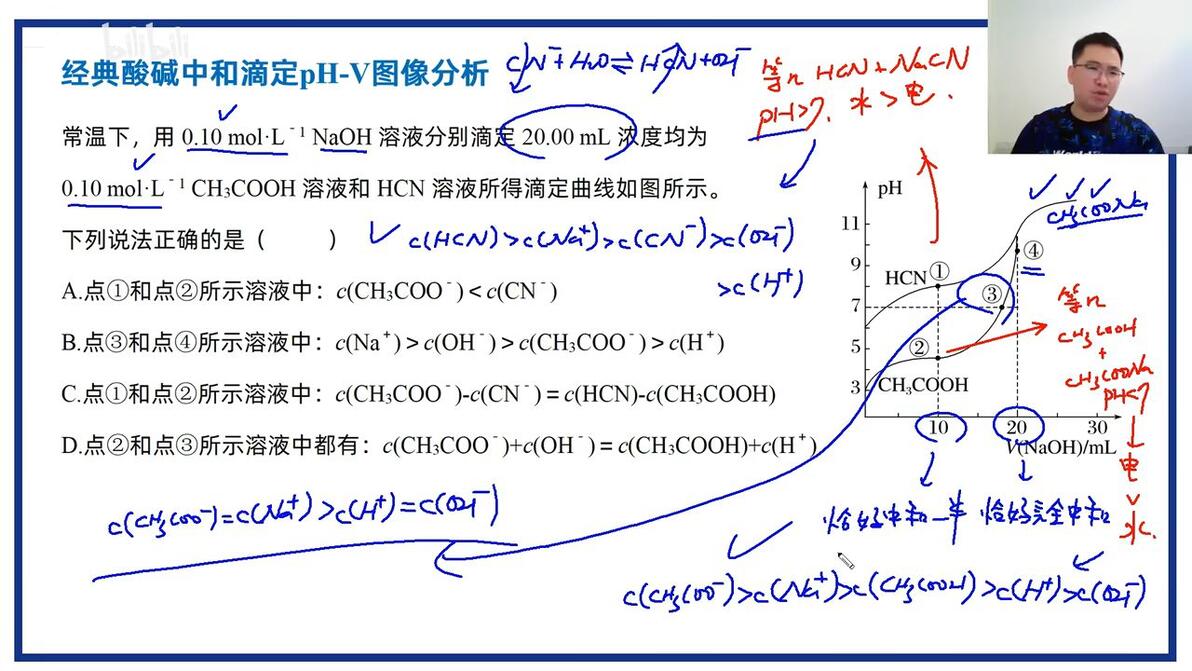 bilibili
经典酸碱中和滴定pH-V图像分析
CN⁻+H₂O⇌HCN+OH⁻
等n HCN+NaCN
pH>7. 水>电.
常温下，用 0.10 mol·L⁻¹ NaOH 溶液分别滴定 20.00 mL 浓度均为
0.10 mol·L⁻¹ CH₃COOH 溶液和 HCN 溶液所得滴定曲线如图所示。
下列说法正确的是（ ）
c(HCN)>c(Na⁺)>c(CN⁻)>c(OH⁻)
>c(H⁺)
A.点①和点②所示溶液中：c(CH₃COO⁻)<c(CN⁻)
B.点③和点④所示溶液中：c(Na⁺)>c(OH⁻)>c(CH₃COO⁻)>c(H⁺)
C.点①和点②所示溶液中：c(CH₃COO⁻)-c(CN⁻)=c(HCN)-c(CH₃COOH)
D.点②和点③所示溶液中都有：c(CH₃COO⁻)+c(OH⁻)=c(CH₃COOH)+c(H⁺)
pH
11
9
7
5
3
HCN
①
②
③
④
CH₃COOH
10
20
30
V(NaOH)/mL
CH₃COONa
等n
CH₃COOH
+
CH₃COONa
pH<7
电
>
水.
恰好中和一半
恰好完全中和
c(CH₃COO⁻)=c(Na⁺)>c(H⁺)=c(OH⁻)
c(CH₃COO⁻)>c(Na⁺)>c(CH₃COOH)>c(H⁺)>c(OH⁻)